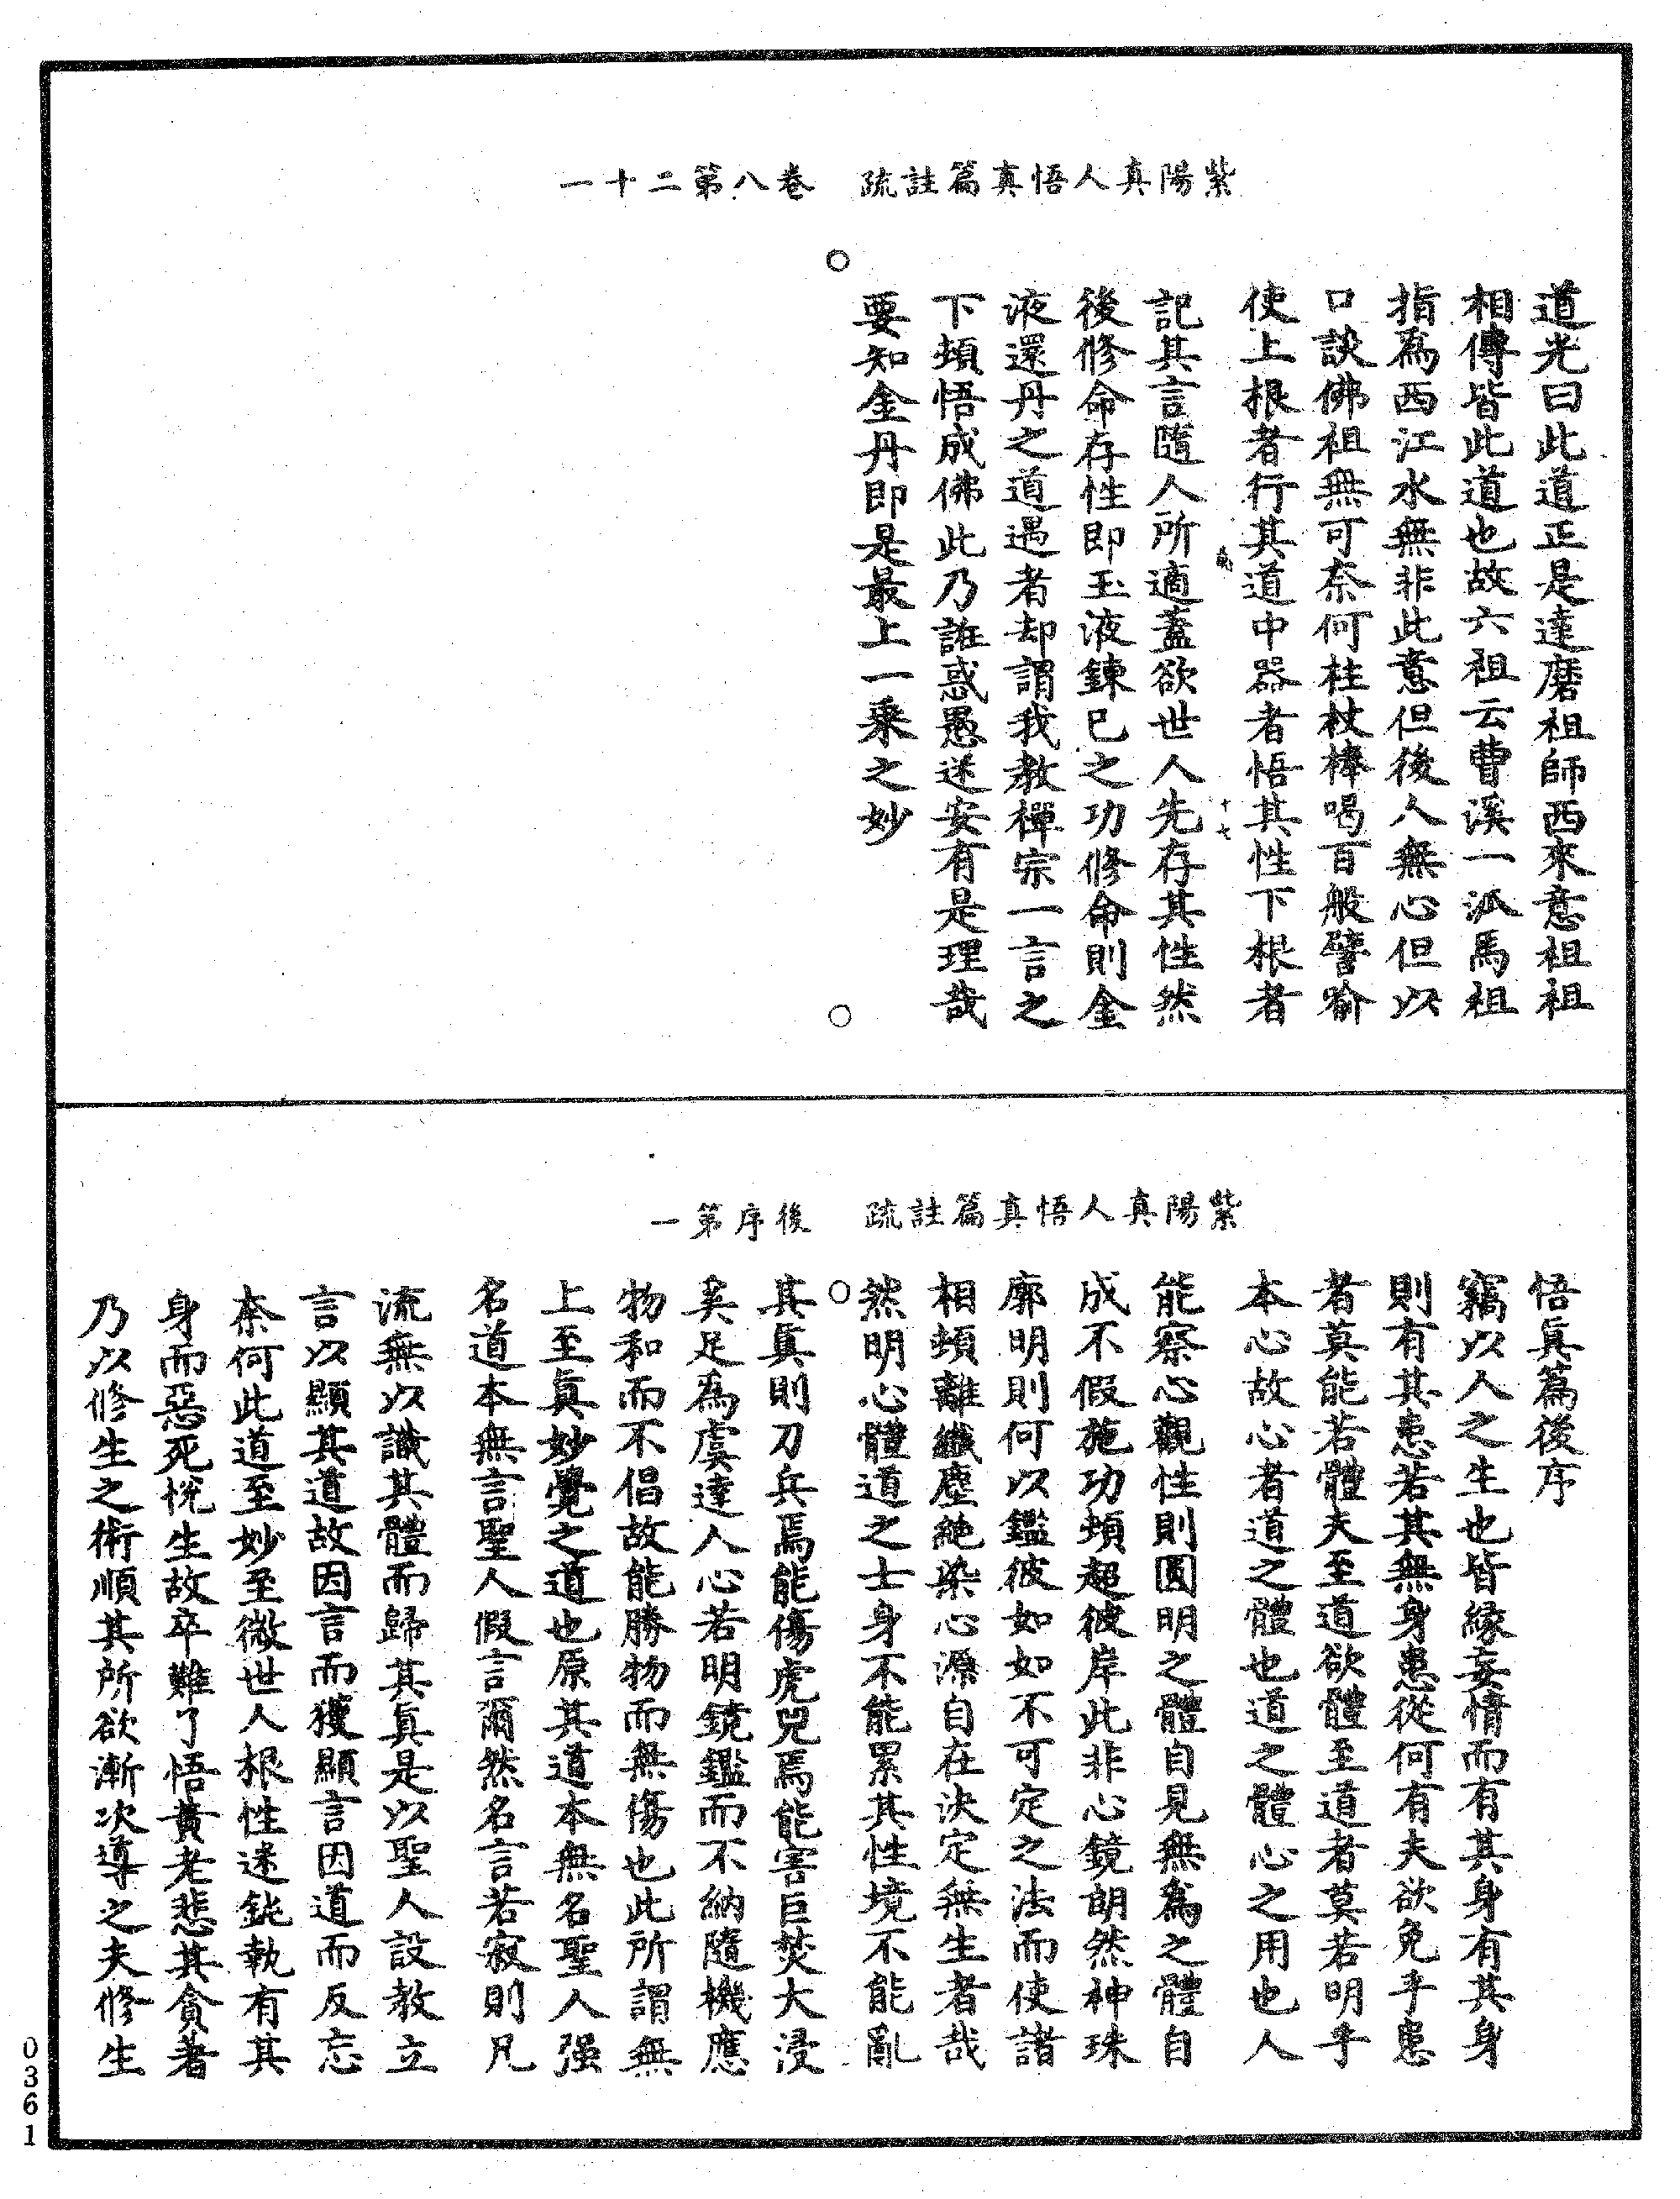 紫陽真人悟真篇註疏　卷八第二十一
道光曰此道正是達磨祖師西來意祖祖
相傳皆此道也故六祖云曹溪一泒馬祖
指爲西江水無非此意但後人無心但以
口談佛祖無可奈何柱杖棒喝百般譬喻
使上根者行其道中器者悟其性下根者
記其言隨人所適蓋欲世人先存其性然
後修命存性即玉液鍊已之功修命則金
液還丹之道遇者却謂我教禪宗一言之
下頓悟成佛此乃誑惑愚迷安有是理哉
要知金丹即是最上一乘之妙
紫陽真人悟真篇註疏　後序第一
悟眞篇後序
竊以人之生也皆緣妄情而有其身有其身
則有其患若其無身患從何有夫欲免乎患
者莫能若體夫至道欲體至道者莫若明乎
本心故心者道之體也道之體心之用也人
能察心觀性則圓明之體自見無爲之體自
成不假施功頓超彼岸此非心鏡朗然神珠
廓明則何以鑑彼如如不可定之法而使諸
相頓離纖塵絶染心源自在決定無生者哉
然明心體道之士身不能累其性境不能亂
其眞則刀兵焉能傷虎兕焉能害巨焚大浸
奚足爲虞達人心若明鏡鑑而不納隨機應
物和而不倡故能勝物而無傷也此所謂無
上至眞妙覺之道也原其道本無名聖人强
名道本無言聖人假言爾然名言若寂則凡
流無以識其體而歸其眞是以聖人設教立
言以顯其道故因言而獲顯言因道而反忘
柰何此道至妙至微世人根性迷鈍執有其
身而惡死悅生故卒難了悟黃老悲其貪著
乃以修生之術順其所欲漸次導之夫修生
0361